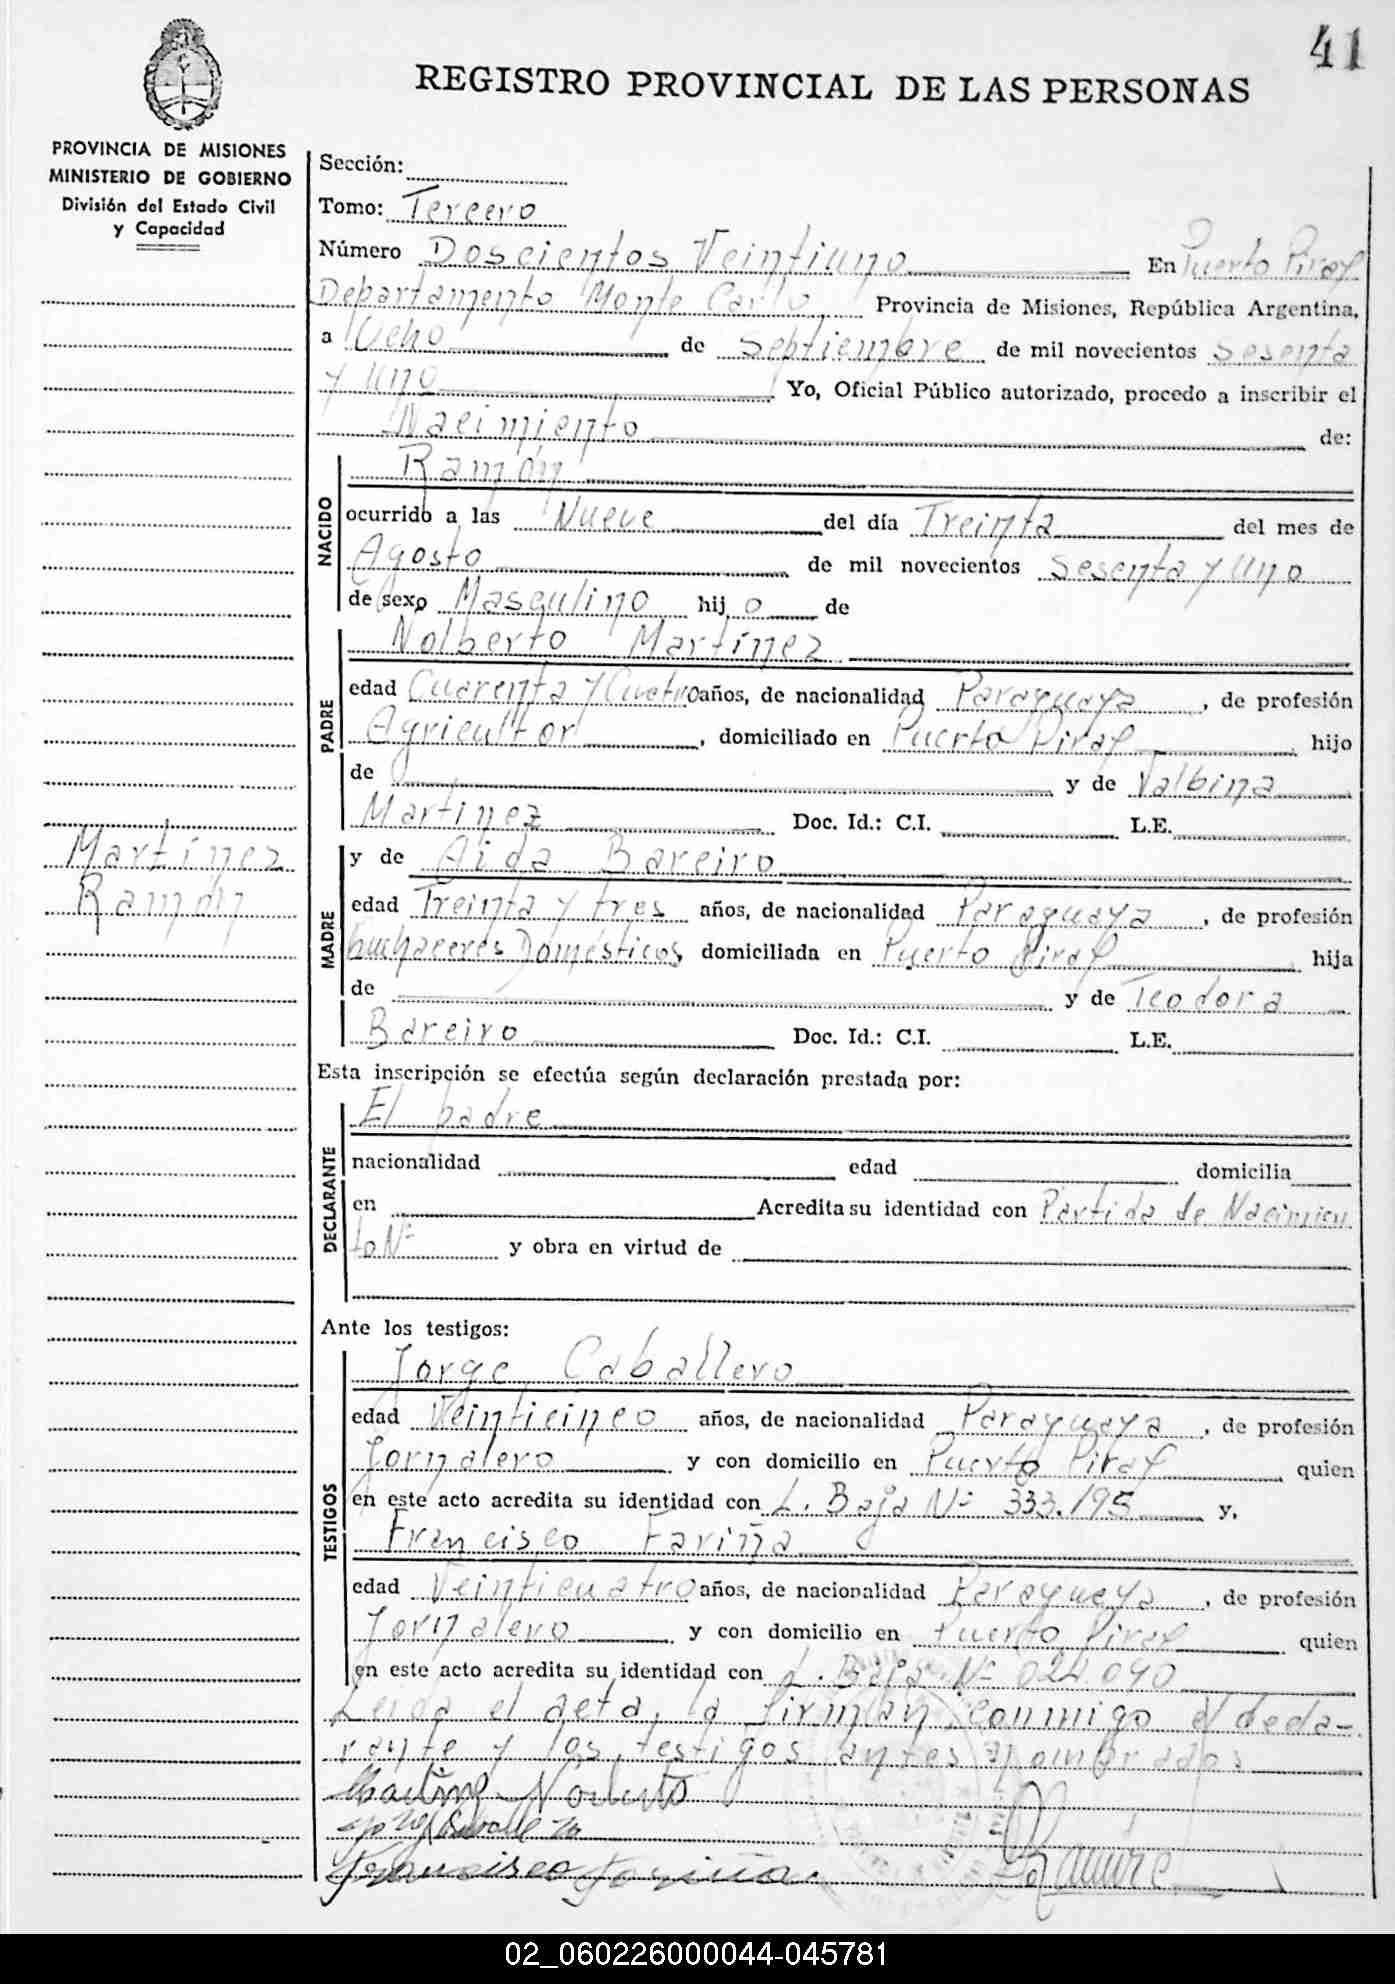 41
REGISTRO PROVINCIAL DE LAS PERSONAS
PROVINCIA DE MISIONES
MINISTERIO DE GOBIERNO
División del Estado Civil
y Capacidad
Sección:
Tomo: Tercero
Número Doscientos Veintiuno En Puerto Piray
Departamento Monte Carlo, Provincia de Misiones, República Argentina,
a Ocho de Septiembre de mil novecientos Sesenta
y Uno Yo, Oficial Público autorizado, procedo a inscribir el
Nacimiento de:
NACIDO
Ramón
ocurrido a las Nueve del día Treinta del mes de
Agosto de mil novecientos Sesenta y Uno
de sexo Masculino hij o de
PADRE
Nolberto Martínez
edad Cuarenta y Cuatro años, de nacionalidad Paraguaya, de profesión
Agricultor, domiciliado en Puerto Piray hijo
de y de Valbina
Martinez Doc. Id.: C.I. L.E.
Martínez
Ramón
MADRE
y de Aida Bareiro
edad Treinta y tres años, de nacionalidad Paraguaya, de profesión
Domésticos, domiciliada en Puerto Piray hija
de y de Teodora
Bareiro Doc. Id.: C.I. L.E.
Esta inscripción se efectúa según declaración prestada por:
DECLARANTE
El padre
nacionalidad edad domicilia
en Acredita su identidad con Partida de Nacimien
to Nº y obra en virtud de
Ante los testigos:
TESTIGOS
Jorge Caballero
edad Veinticinco años, de nacionalidad Paraguaya, de profesión
Jornalero y con domicilio en Puerto Piray quien
en este acto acredita su identidad con L. Baja Nº 333.195 y,
Francisco Fariña
edad Veinticuatro años, de nacionalidad Paraguaya, de profesión
Jornalero y con domicilio en Puerto Piray quien
en este acto acredita su identidad con L. Baja Nº 024.090
Leida el acta, la firman conmigo el decla-
rante y los testigos antes nombrados
Francisco Fariña
Ramire
02_060226000044-045781